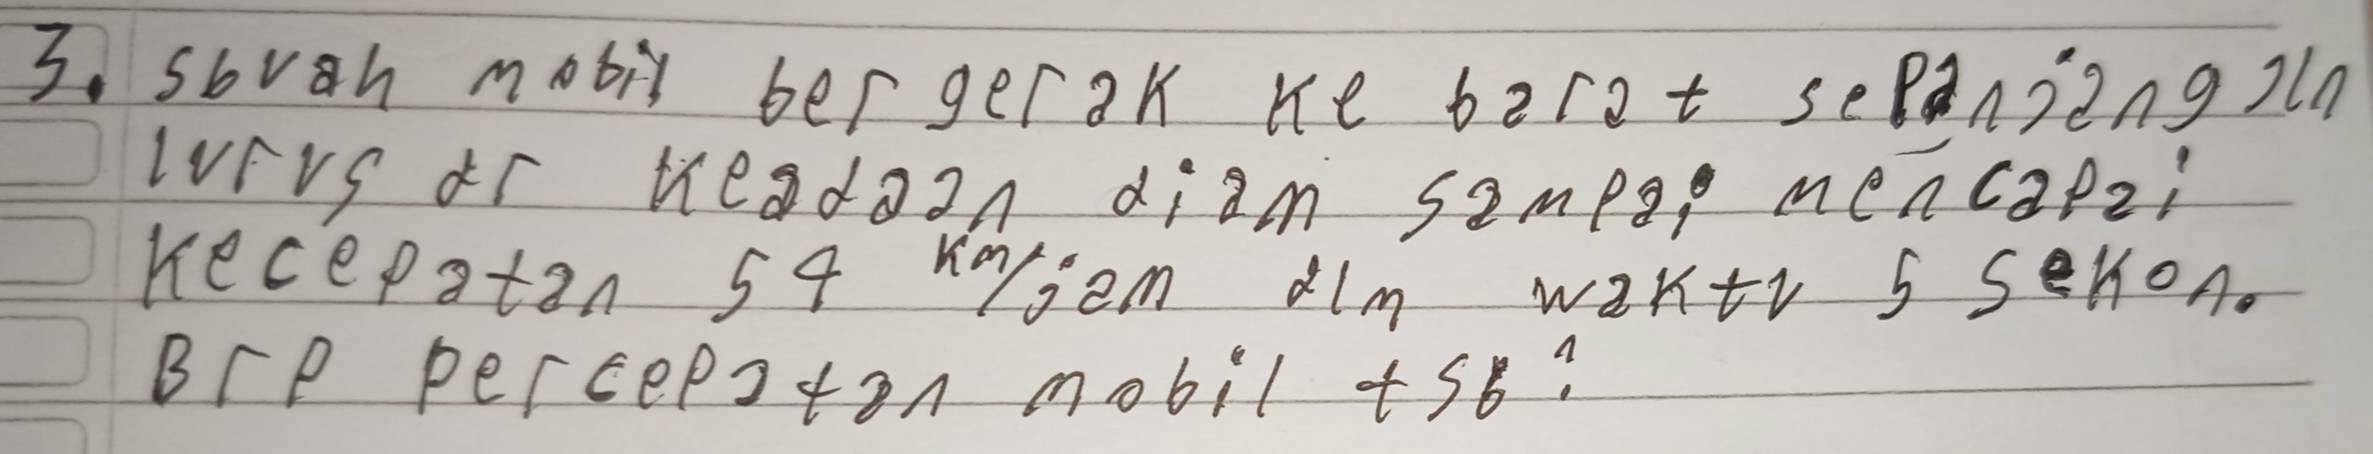 3. sbuah mobil bergerak ke barat sepanjang jln
lurus dr keadaan diam sampai mencapai
kecepatan 54 km/jam dlm waktu 5 sekon.
Brp percepatan mobil tsb?